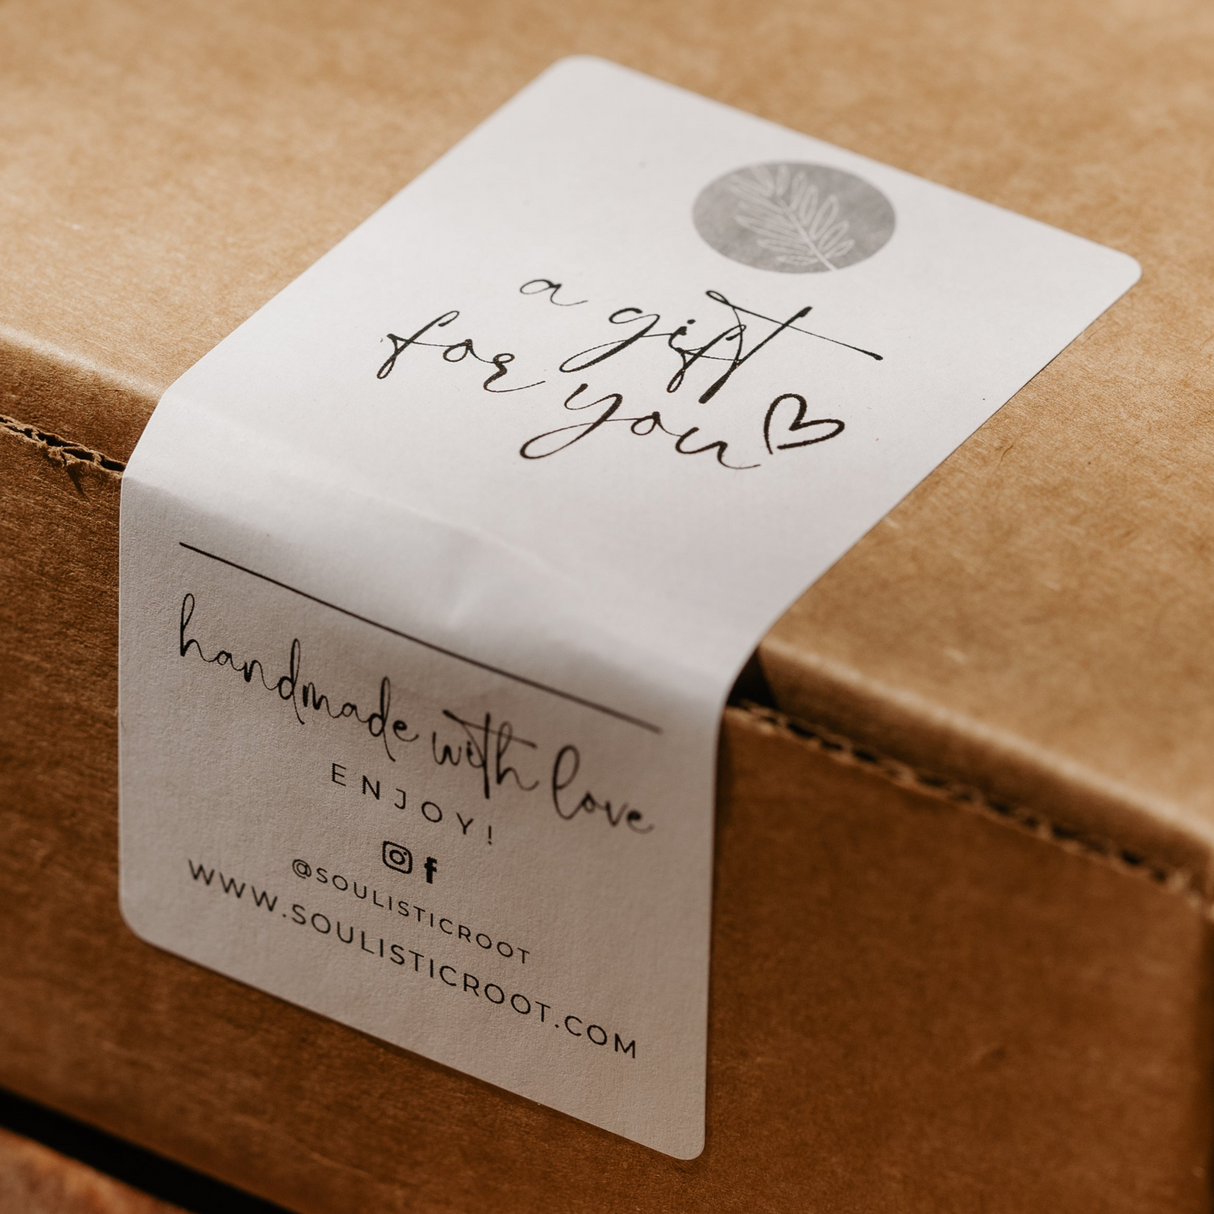 a gift
for you
handmade with love
ENJOY!
@SOULISTICROOT
WWW.SOULISTICROOT.COM